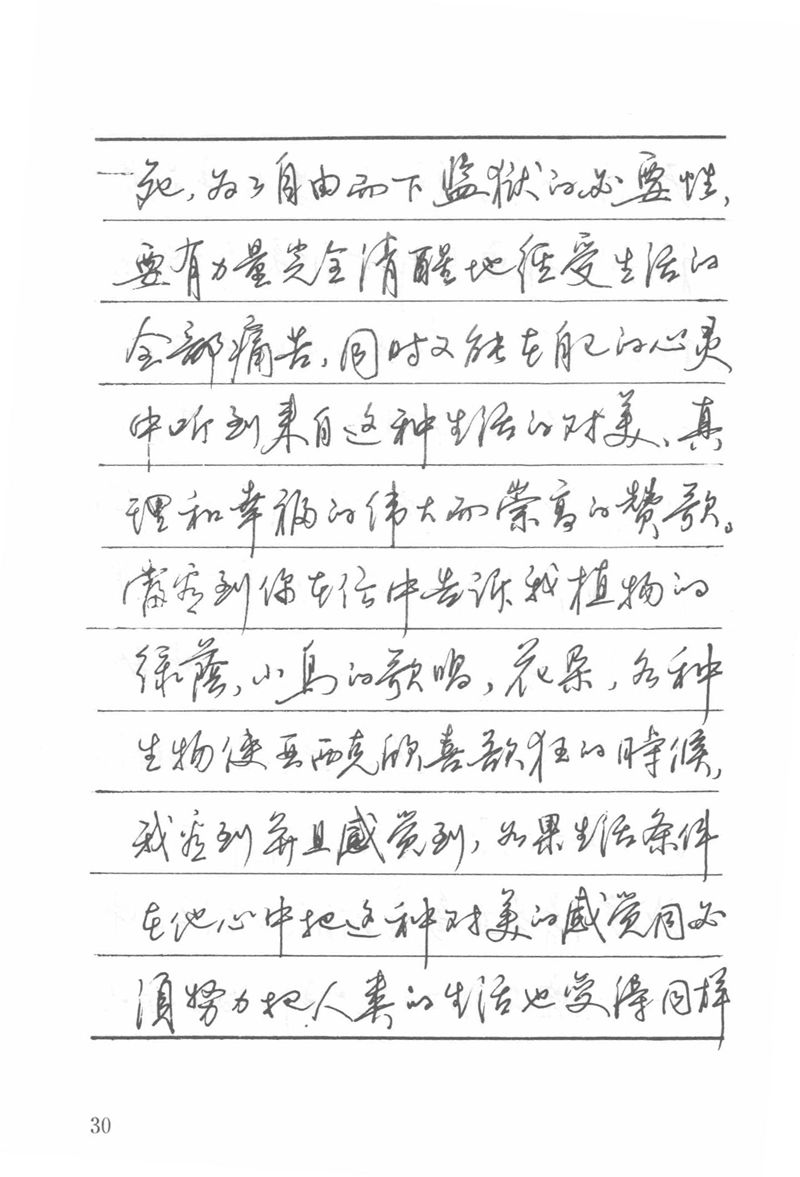 死，为了自由而下监狱的必要性，
要有力量完全清醒地经受生活的
全部痛苦，同时又能在自己的心灵
中听到来自这种生活的对美、真
理和幸福的伟大而崇高的赞歌。
当看到你在信中告诉我植物的
绿荫，小鸟的歌唱，花朵，各种
生物使亚西克欣喜欲狂的时候，
我看到并且感觉到，如果生活条件
在他心中把这种对美的感觉同必
须努力把人类的生活也变得同样
30